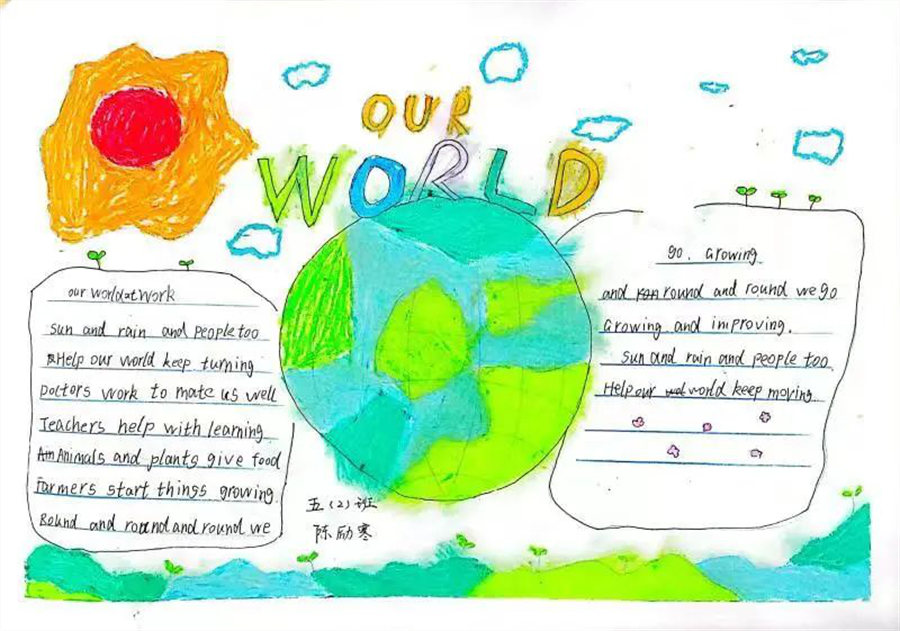 OUR
WORLD
our world at work
Sun and rain and people too
Help our world keep turning
Doctors work to mate us well
Teachers help with learning
Am Animals and plants give food
Farmers start things growing.
Round and round and round we
go. Growing
and round and round we go
Growing and improving.
Sun and rain and people too.
Help our world keep moving
五(2)班
陈励寒